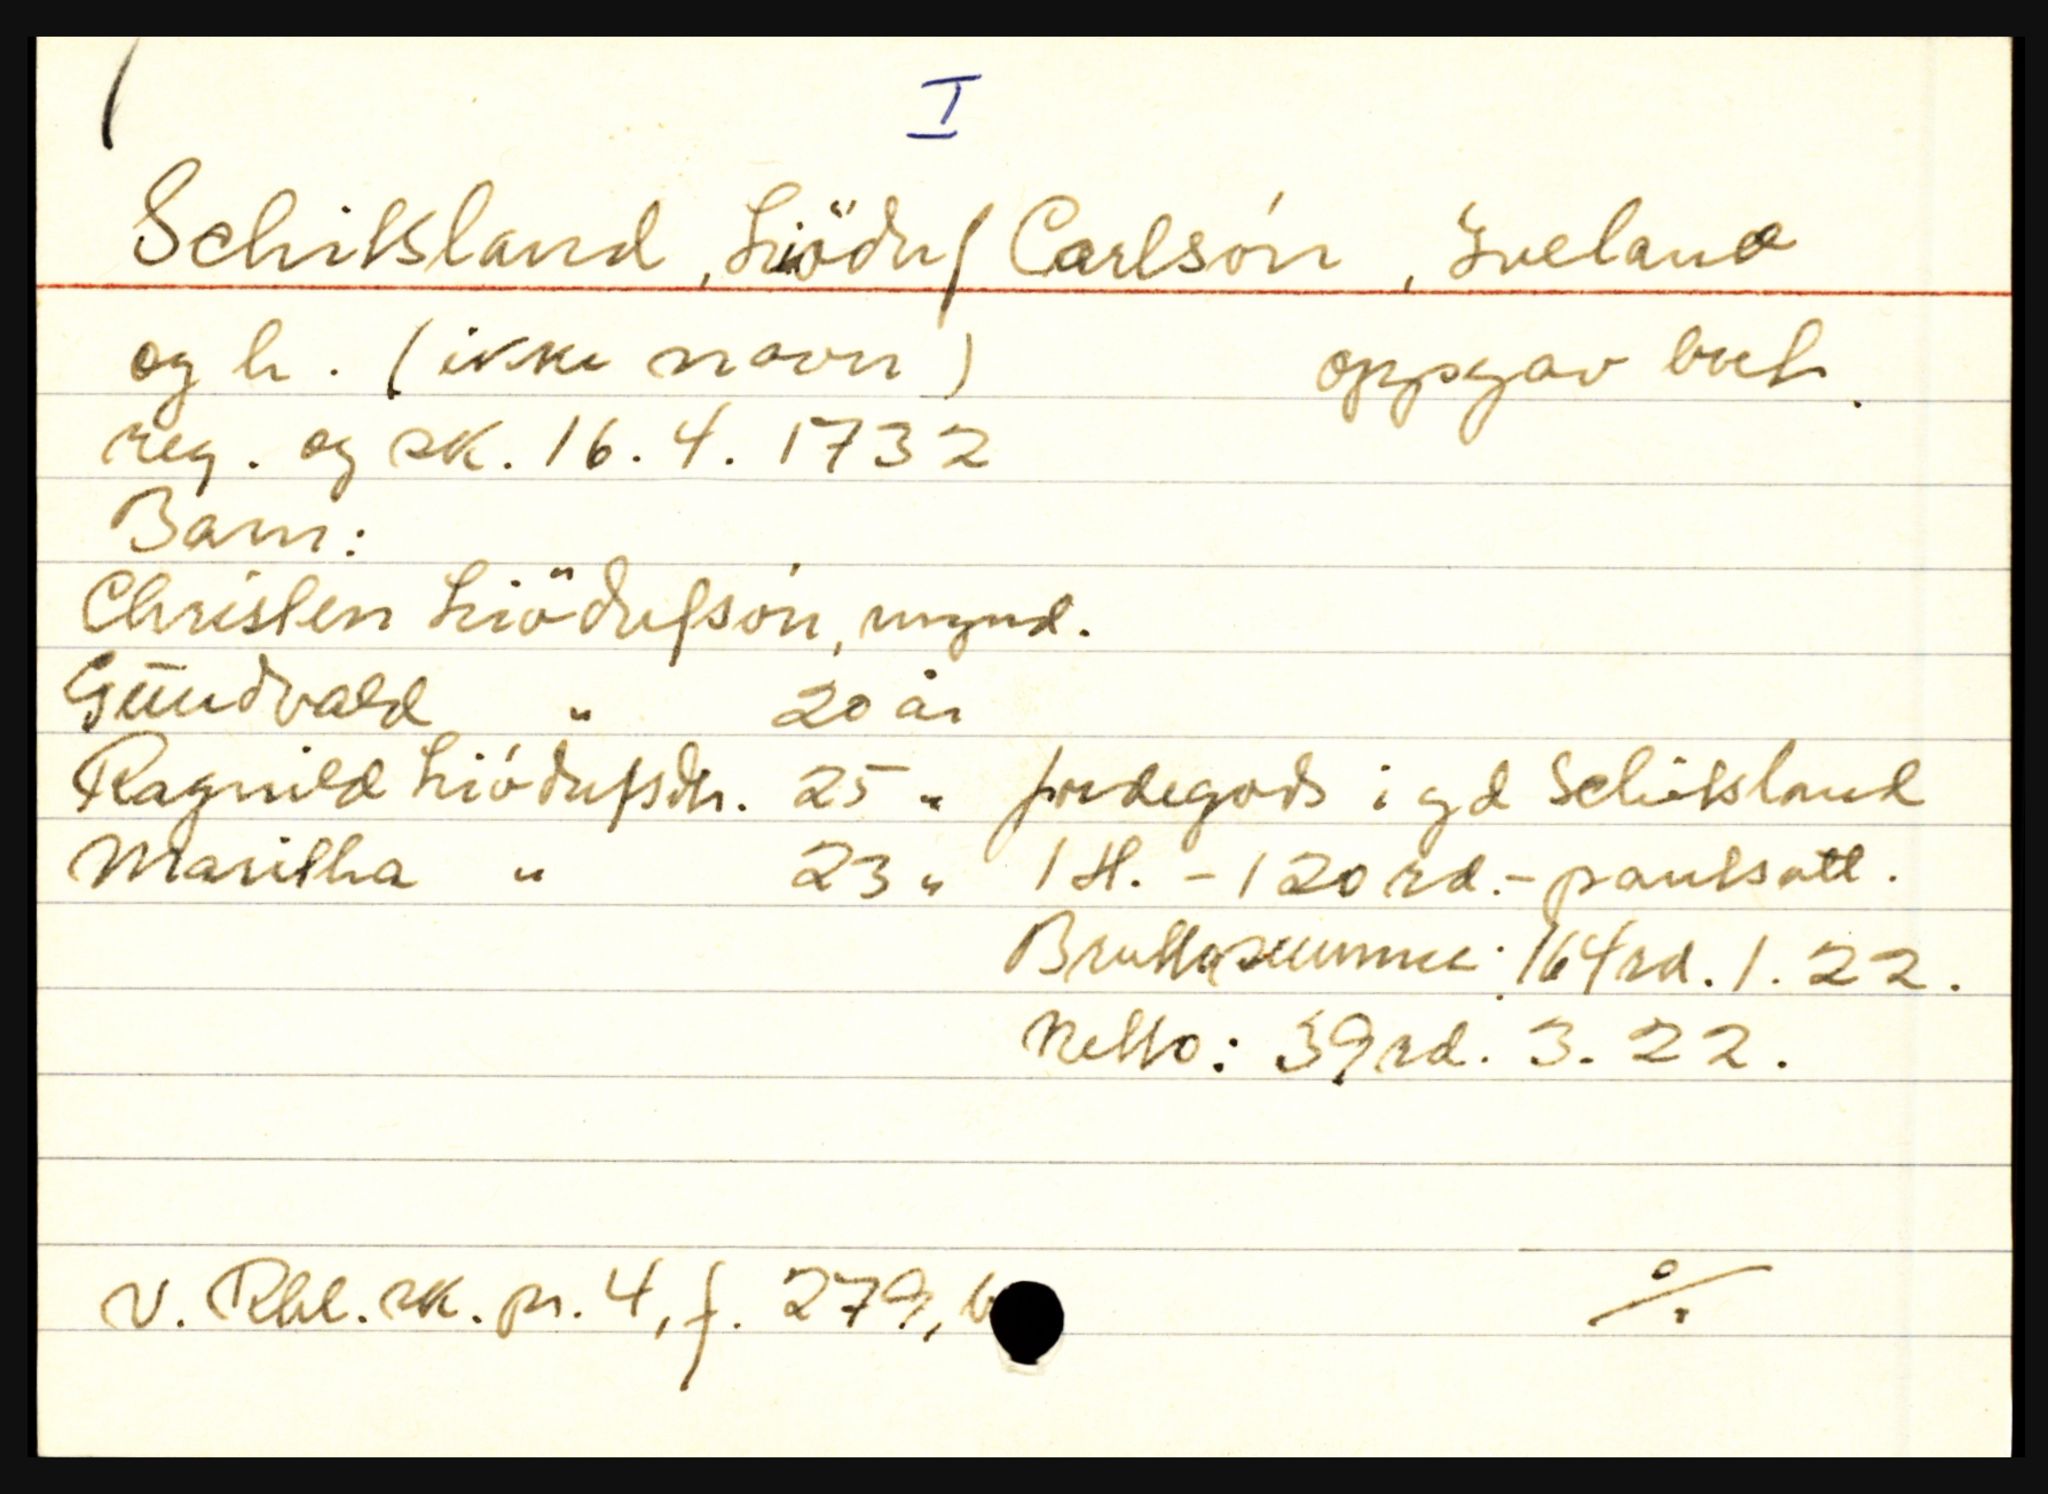 I
Schiksland, Liödulf Carlsón, Iveland
og h. (ikke navn) oppgav boet.
reg. og sk. 16.4.1732
Barn:
Christen Liödufsón, mynd.
Gūndvald " 20 år
Ragnild Liódufsdtr. 25 " jordegods i gd Schiksland
Maritha " 23 " 1 H. - 120 rd. - pantsatt.
Bruttosumme: 164 rd. 1. 22.
Netto: 39 rd. 3. 22.
v. Rbl. sk. pr. 4, f. 279, b